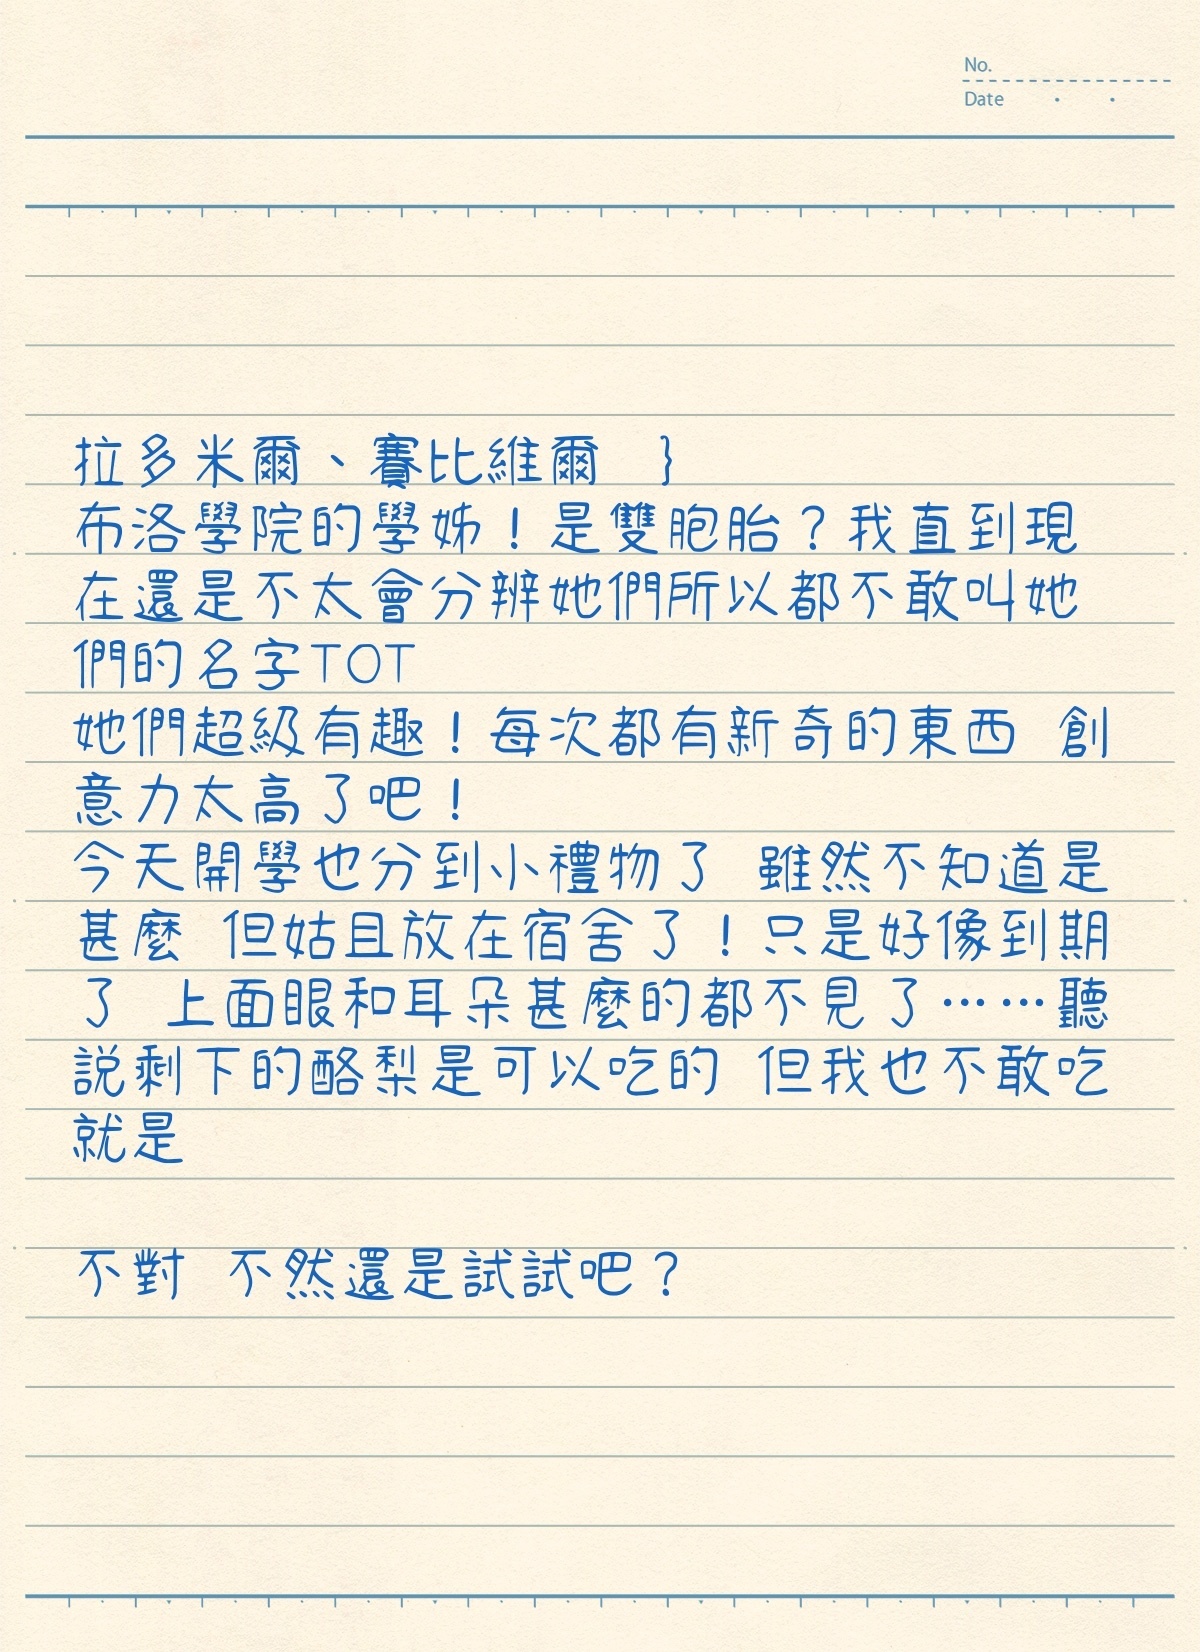 No.
Date
拉多米爾、賽比維爾 }
布洛學院的學姊！是雙胞胎？我直到現
在還是不太會分辨她們所以都不敢叫她
們的名字TOT
她們超級有趣！每次都有新奇的東西 創
意力太高了吧！
今天開學也分到小禮物了 雖然不知道是
甚麼 但姑且放在宿舍了！只是好像到期
了 上面眼和耳朵甚麼的都不見了……聽
說剩下的酪梨是可以吃的 但我也不敢吃
就是
不對 不然還是試試吧？